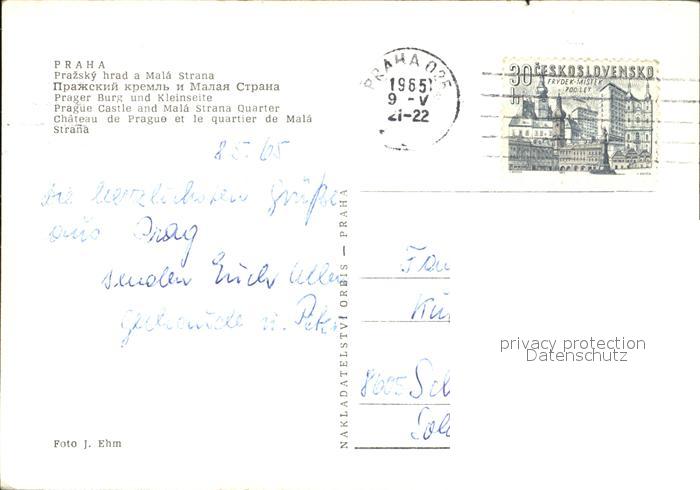 PRAHA
Pražský hrad a Malá Strana
Пражский кремль и Малая Страна
Prager Burg und Kleinseite
Prague Castle and Malá Strana Quarter
Château de Prague et le quartier de Malá
Straňa
PRAHA 025
1965
9 -V
21-22
30 ČESKOSLOVENSKO
h FRÝDEK-MÍSTEK
700 LET
8.5.65
Die herzlichsten Grüße
aus Prag
senden Euch allen
Gertraude u. Peter
NAKLADATELSTVÍ ORBIS — PRAHA
Fam
Kü
8605 Sch
privacy protection
Datenschutz
Foto J. Ehm